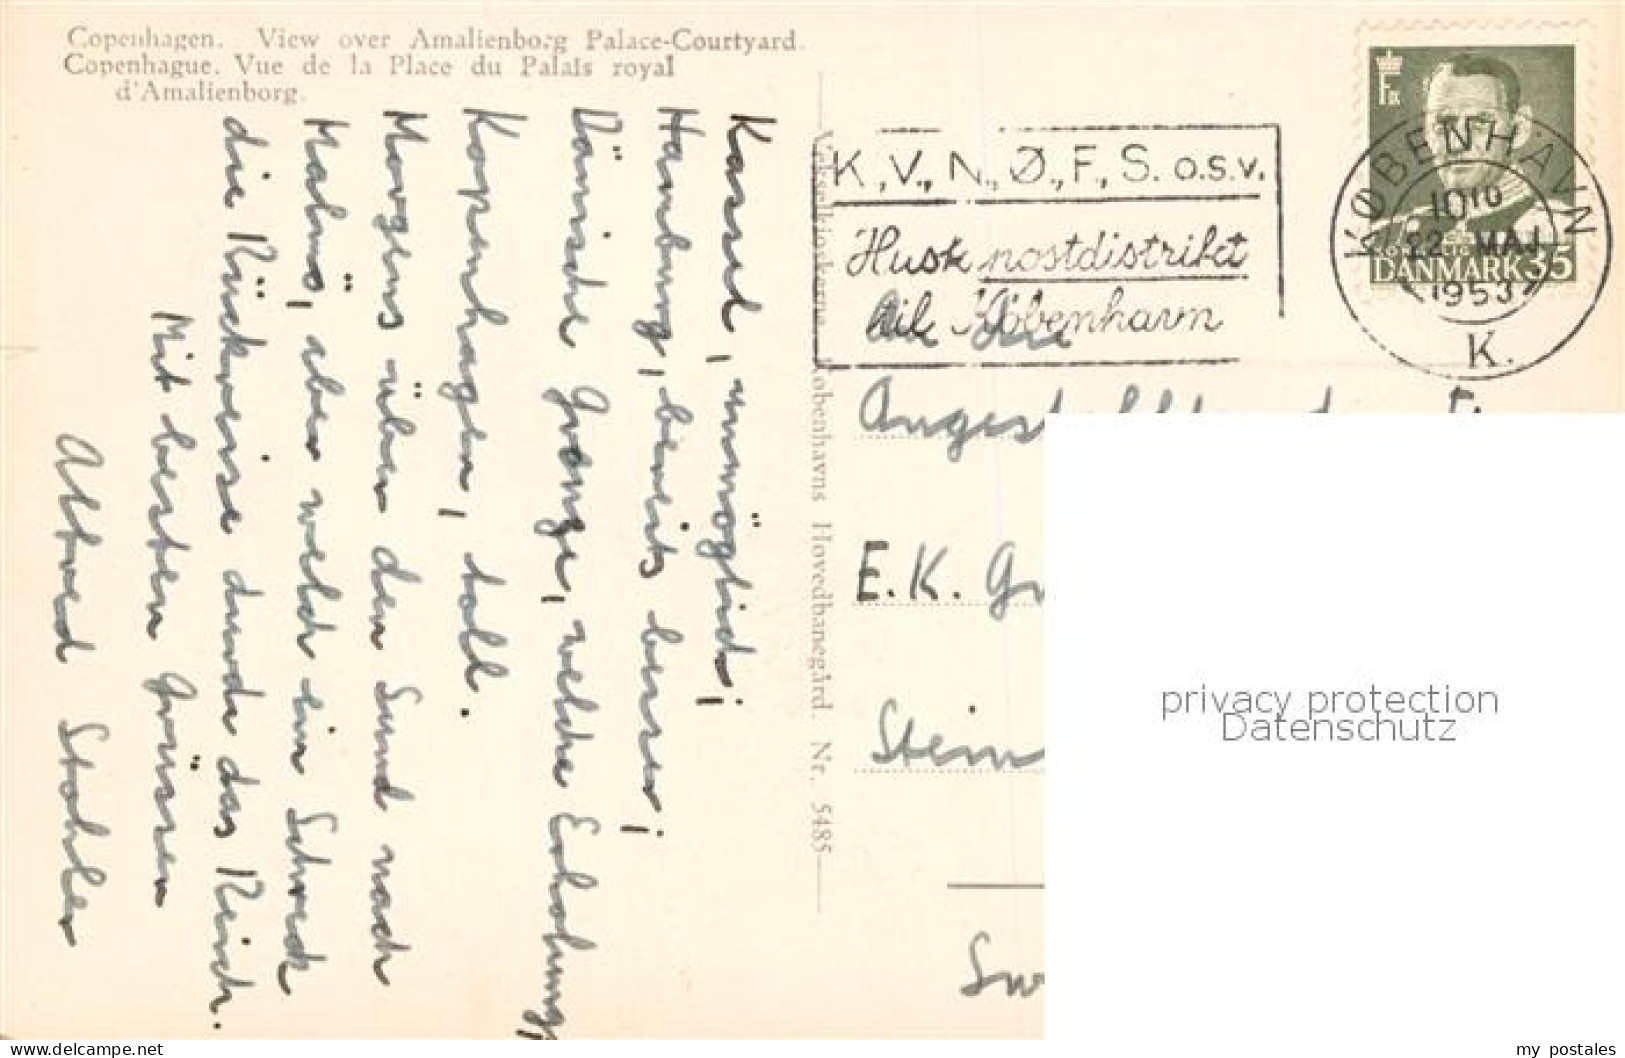 Copenhagen. View over Amalienborg Palace-Courtyard.
Copenhague. Vue de la Place du Palais royal
d'Amalienborg.
Kassel, unmöglich;
Hamburg, bereits besser;
Dänische Grenze, welche Erholung;
Kopenhagen, toll.
Morgens über den Sund nach
Malmö, aber welch ein Schreck
die Rückreise durch das Reich.
Mit besten Grüssen
Alfred Stohler
Vekselkioskerne, Kobenhavns Hovedbanegård. Nr. 5485
K., V., N., Ø., F., S. o.s.v.
Husk postdistrikt
til København
KØBENHAVN
10 10
22 MAJ
1953
K.
F IX
DANMARK 35
E.K.
privacy protection
Datenschutz
the-best-of-postcards: www.delcampe.net
my_postales